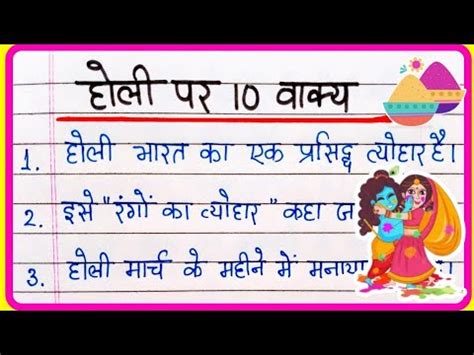 होली पर 10 वाक्य
1. होली भारत का एक प्रसिद्ध त्योहार है।
2. इसे "रंगों का त्योहार" कहा
3. होली मार्च के महीने में मनाया